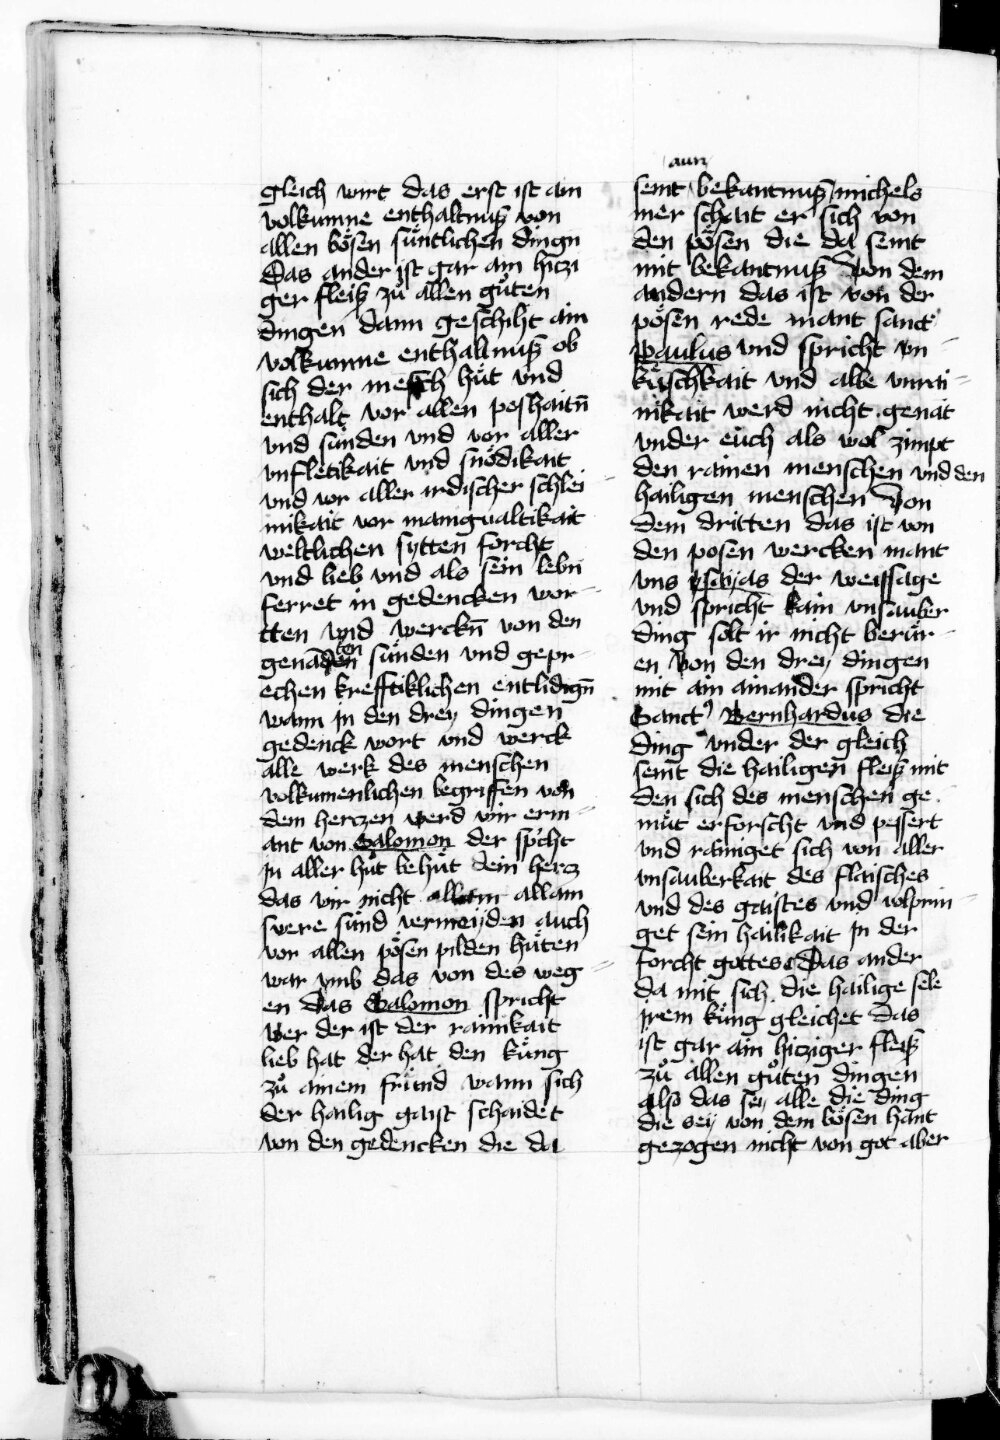 gleich wirt das erst ist ain
volkumne enthaltnuß von
allen bösen süntlichen dingn
Das ander ist gar ain hiczi
ger fleiß zů allen gůten
dingen dann geschiht ain
volkumne enthaltnuß ob
sich der mesch hüt vnd
enthalt vor allen poshaitn̄
vnd sünden vnd vor aller
vnfletikait vnd snödikait
vnd vor aller irdischer schlei
mikait vor manigualtikait
weltlichen sytten forcht
vnd lieb vnd als sein lebn̄
ferret in gedencken wor-
tten vnd werckn̄ von den
genāden sünden vnd gepr-
echen krefftiklichen entlidign̄
wann in den drey dingen
gedenck wort vnd werck
alle werk des menschen
volkumenlichen begriffen von
dem herczen werd wir erm
ant von Salomon der sp'cht
in aller hůt behüt dein hercz
das wir nicht allain
swere sünd vermeyden auch
vor allen pösen pilden hüten
war vmb das von des weg
en das Salomon spricht
Wer der ist der rainikait
lieb hat der hat den küng
zů ainem fründ wann sich
der hailig gaist schaidet
von den gedencken die da
aun
seint bekantnuß michels
mer schait er sich von
den pösen die da seint
mit bekantnuß Von dem
andern das ist von der
pösen rede mant sanct
Paulus vnd spricht vn
küschkait vnd alle vnrai
nikait werd nicht genāt
vnder eüch als wol zimpt
den rainen menschen vnd den
hailigen menschen Von
dem dritten das ist von
den posen wercken mant
vns ysayas der weissage
vnd spricht kain vnsauber
ding solt ir nicht berür-
en Von den drey dingen
mit ain ainander spricht
Sanct' Bernhardus die
ding vnder der gleich
seint die hailigen fleiß mit
den sich des menschen ge
müt erforscht vnd pessert
vnd rainiget sich von aller
vnsauberkait des flaisches
vnd des gaistes vnd volprin
get sein hailikait in der
forcht gottes Das ander
da mit sich die hailige sele
irem küng gleichet das
ist gar ain hicziger fleiß
zů allen gůten dingen
also das sey alle die ding
die sey von dem bösen hānt
gezogen nicht von got aber